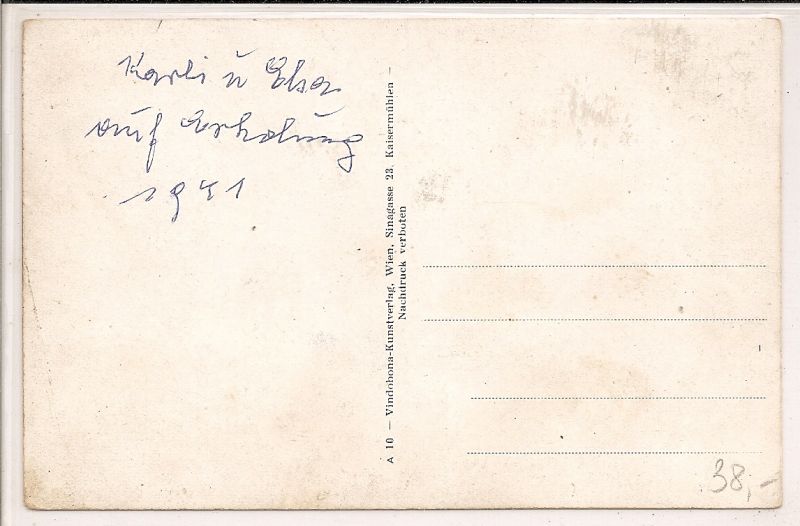 Karli u Elsa
auf Erholung
1941
A 10 — Vindobona-Kunstverlag, Wien, Sinagasse 23, Kaisermühlen —
Nachdruck verboten
38,-